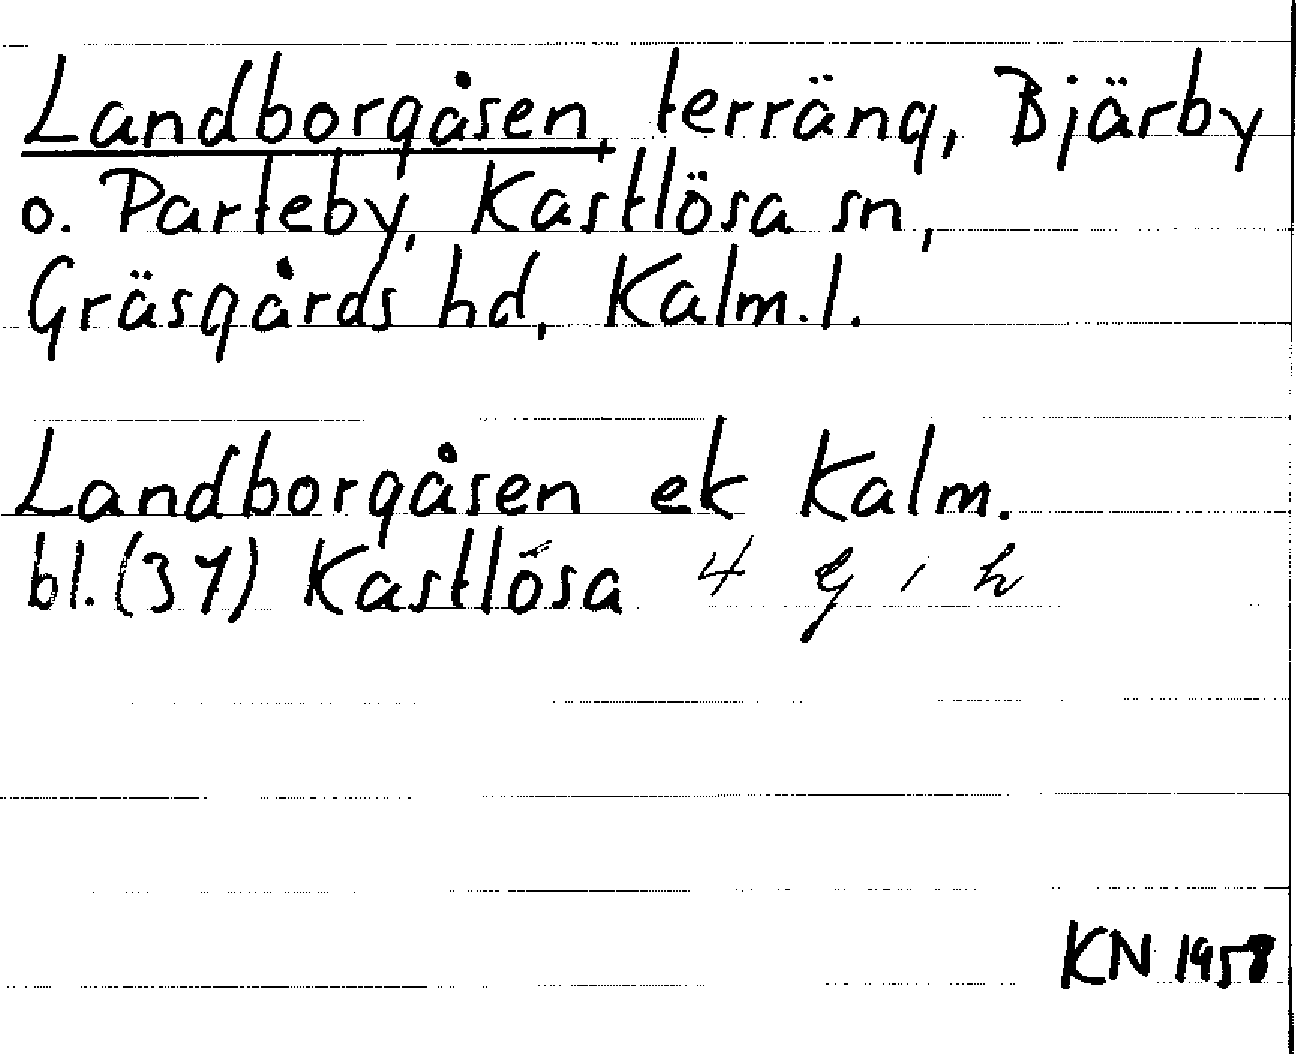 Landborgåsen, terräng, Bjärby
o. Parteby, Kastlösa sn,
Gräsgårds hd, Kalm.l.
Landborgåsen ek Kalm.
bl.(37) Kastlösa 4 g, h
KN 1958